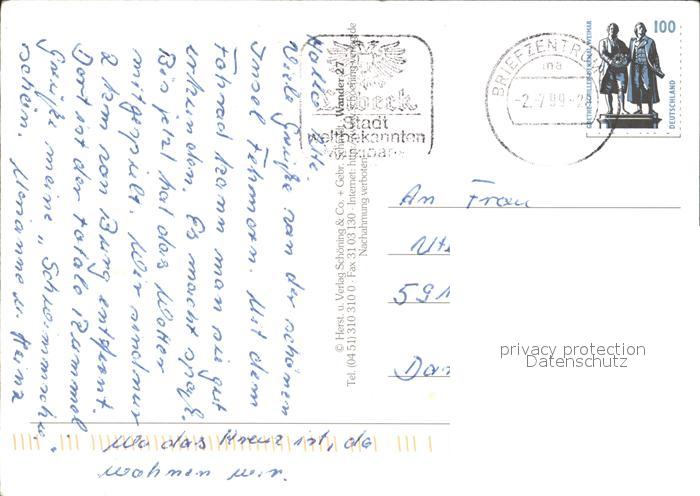 Hallo Ute,
Viele Grüße von der schönen
Insel Fehmarn. Mit dem
Fahrrad kann man sie gut
erkunden. Es macht Spaß.
Bis jetzt hat das Wetter
mitgespielt. Wir sind nur
2 km von Burg entfernt.
Dort ist der totale Rummel
Grüße meine "Schwimm
schein. Marianne u. Heinz
Wo das Kreuz ist, da
wohnen wir.
© Herst. u. Verlag Schöning & Co. + Gebr. Schmidt
Wander 27
Tel. (04 51) 310 310 0 · Fax 31 03 130 · Internet:
Nachahmung verboten
Lübeck
Stadt
weltbekannten
BRIEFZENTRUM
-2.-7.99-
100
DEUTSCHLAND
An Frau
Ut
591
Dor
privacy protection
Datenschutz